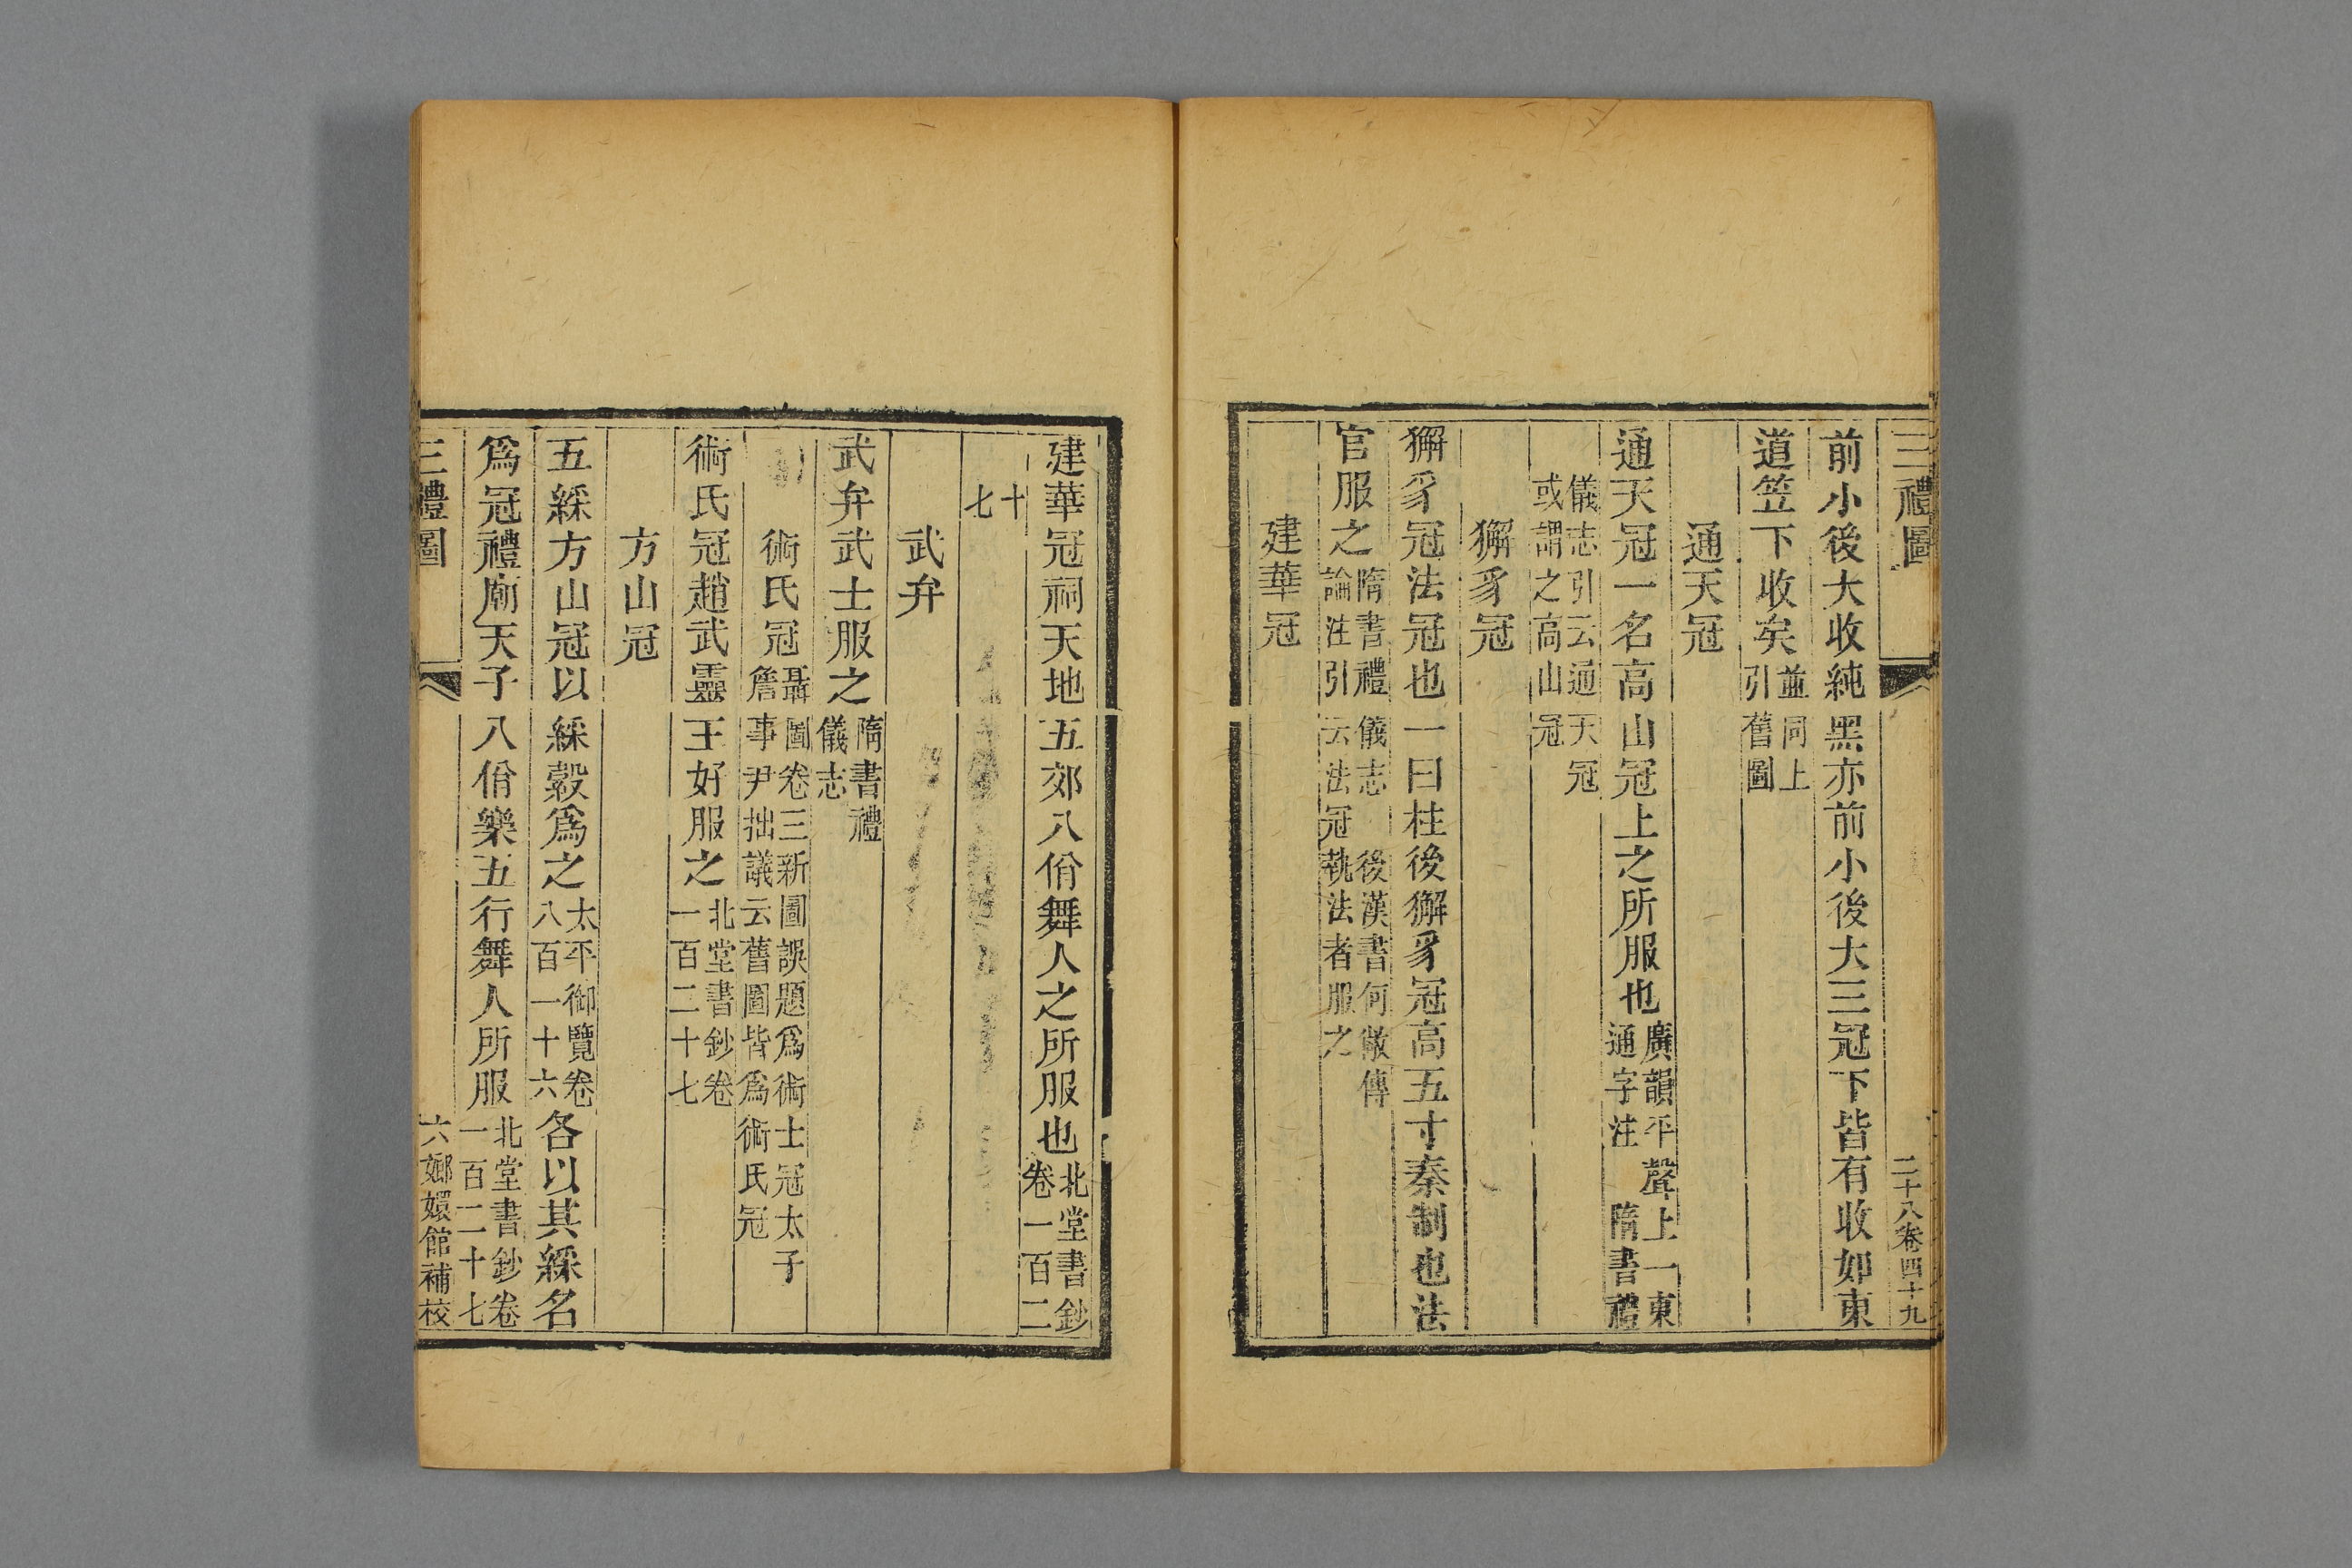 三禮圖
二十八卷四十九
前小後大收純黑亦前小後大三冠下皆有收如東
道笠下收矣並同上引舊圖
通天冠
通天冠一名高山冠上之所服也廣韻平聲上一東通字注隋書禮
儀志引云通天冠或謂之高山冠
獬豸冠
獬豸冠法冠也一曰柱後獬豸冠高五寸秦制也法
官服之隋書禮儀志後漢書何敞傳論注引云法冠執法者服之
建華冠
建華冠祠天地五郊八佾舞人之所服也北堂書鈔卷一百二
十七
武弁
武弁武士服之隋書禮儀志
術氏冠聶圖卷三新圖誤題爲術士冠太子詹事尹拙議云舊圖皆爲術氏冠
術氏冠趙武靈王好服之北堂書鈔卷一百二十七
方山冠
五綵方山冠以綵縠爲之太平御覽卷八百一十六各以其綵名
爲冠禮廟天子八佾樂五行舞人所服北堂書鈔卷一百二十七
三禮圖
六嫏嬛館補校